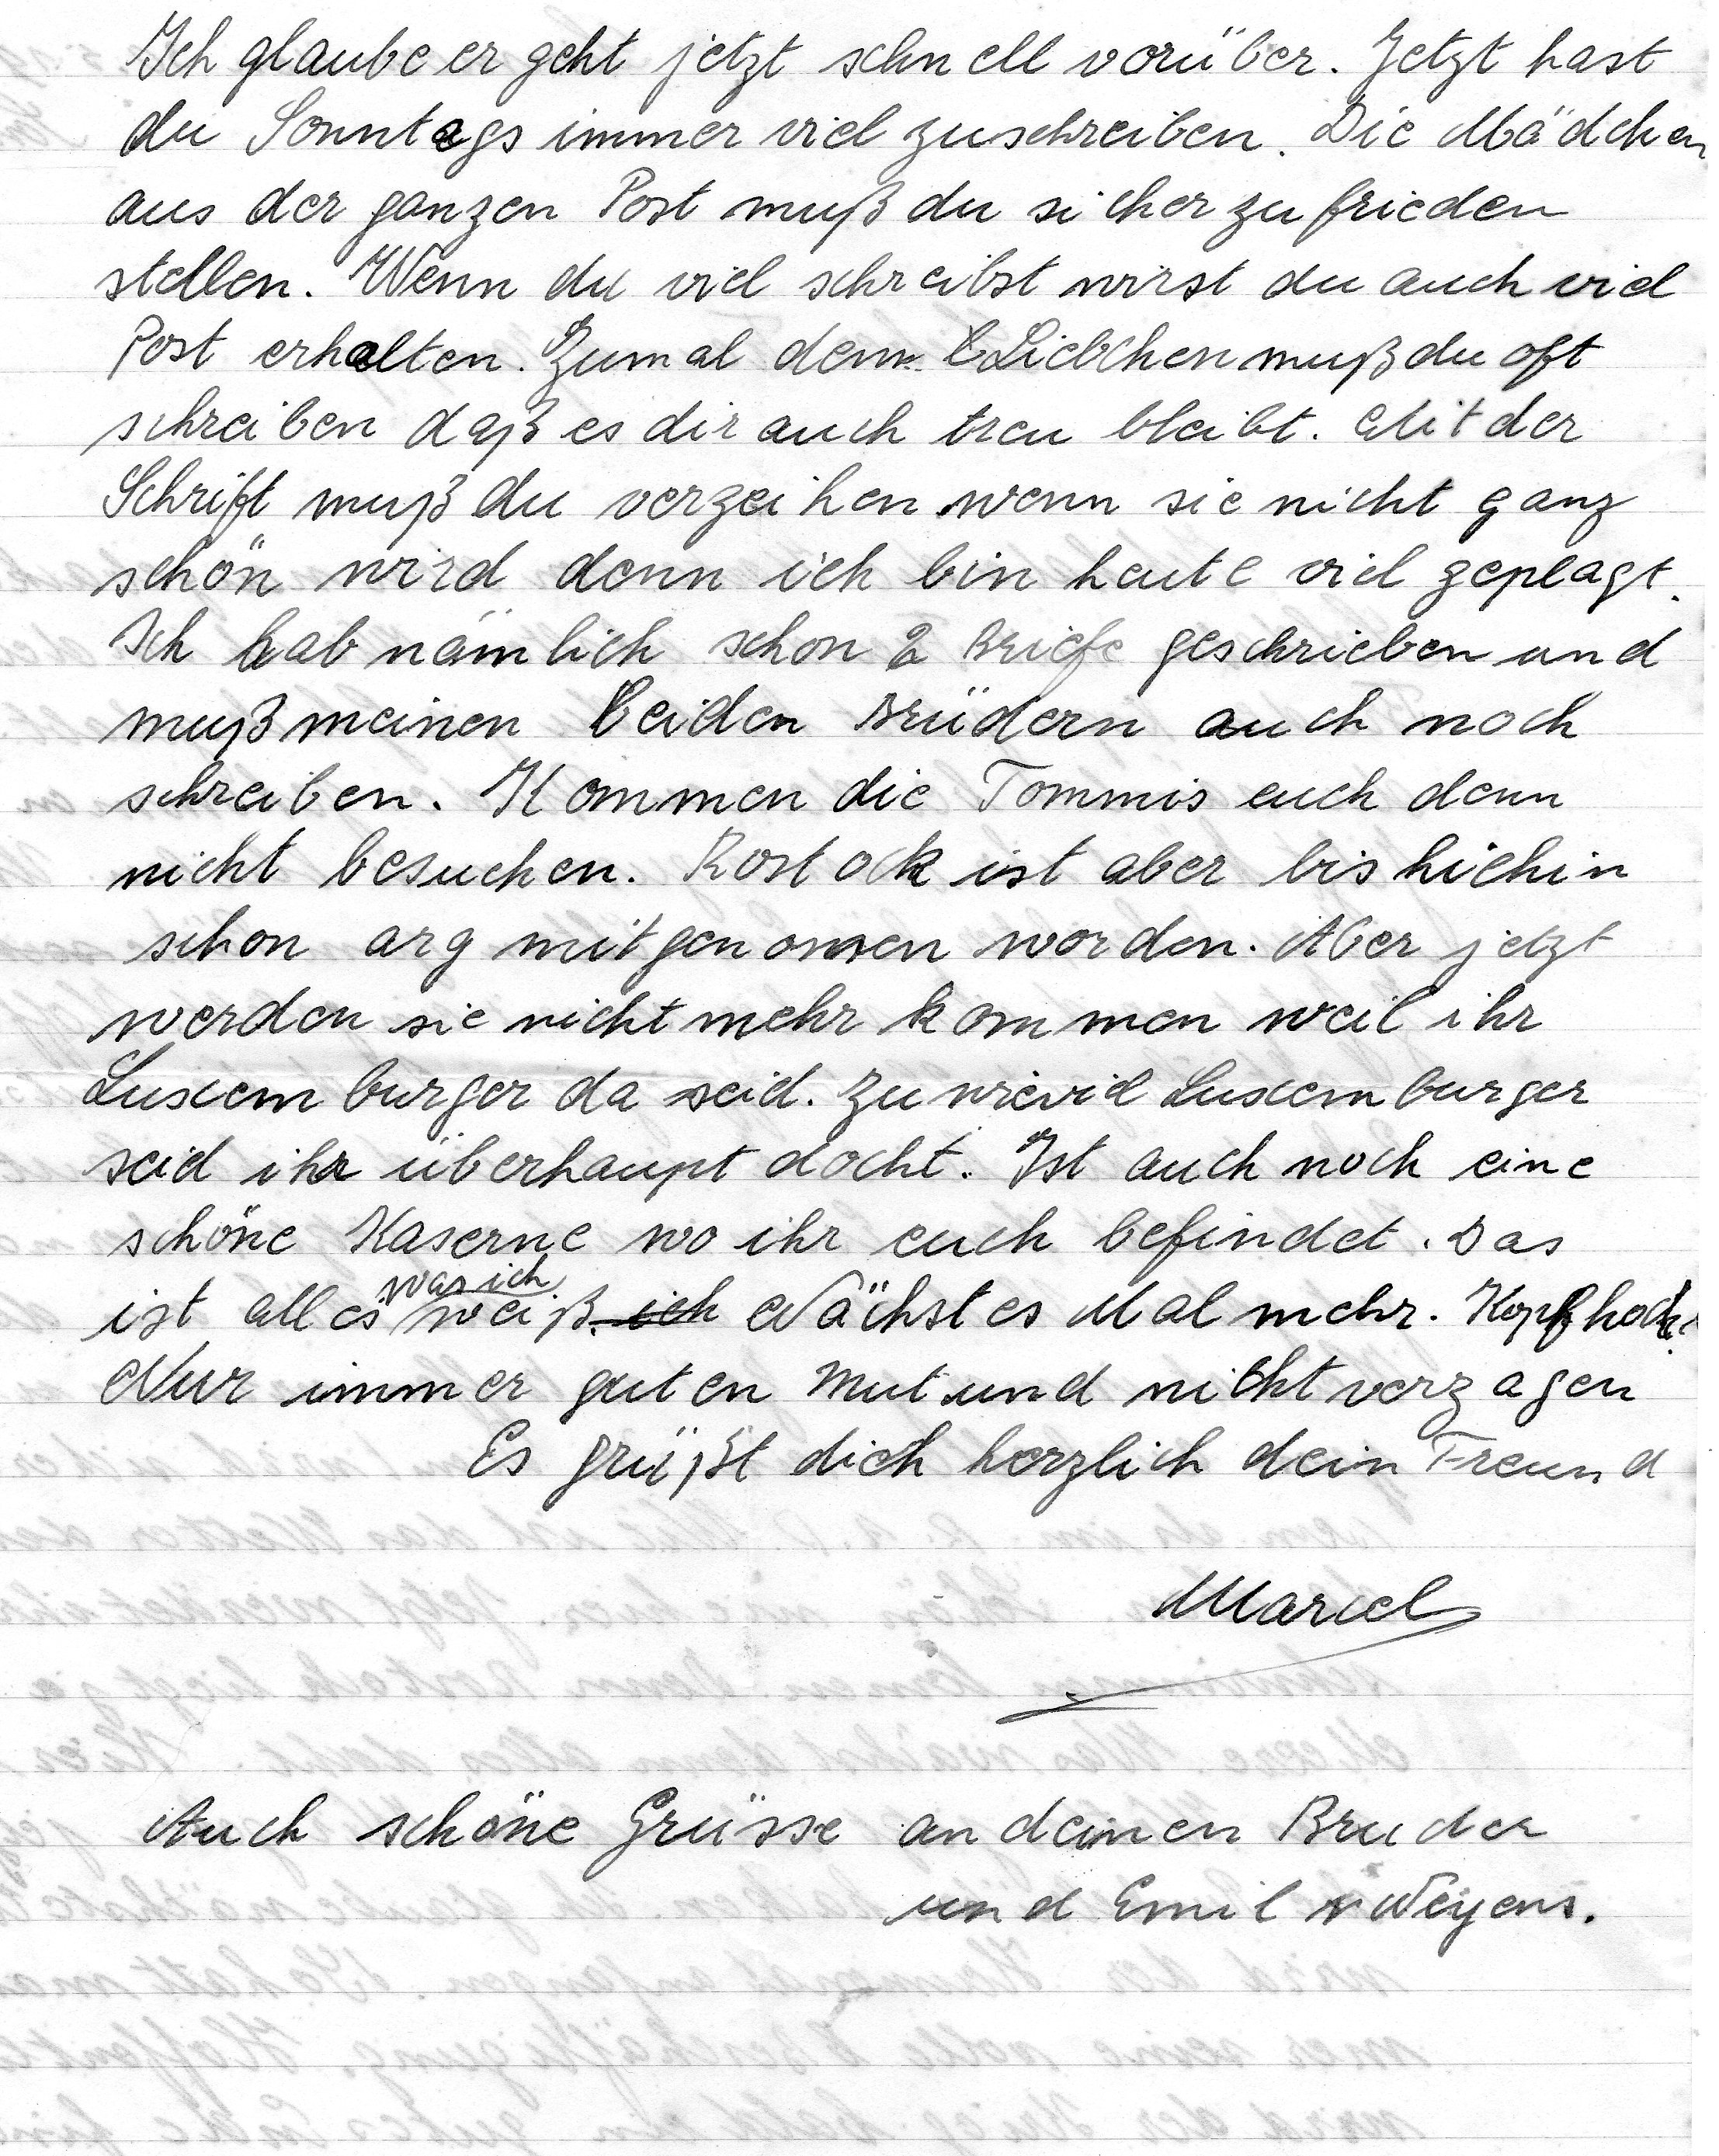 Ich glaube er geht jetzt schnell vorüber. Jetzt hast
du Sonntags immer viel zuschreiben. Die Mädchen
aus der ganzen Post muß du sicher zufrieden
stellen. Wenn du viel schreibst wirst du auch viel
Post erhalten. Zumal dem Liebchen muß du oft
schreiben daß es dir auch treu bleibt. Mit der
Schrift muß du verzeihen wenn sie nicht ganz
schön wird denn ich bin heute viel geplagt.
Ich hab nämlich schon 2 Briefe geschrieben und
muß meinen beiden Brüdern auch noch
schreiben. Kommen die Tommis euch denn
nicht besuchen. Rostock ist aber bis hiehin
schon arg mitgenommen worden. Aber jetzt
werden sie nicht mehr kommen weil ihr
Luxemburger da seid. Zu wieviel Luxemburger
seid ihr überhaupt docht. Ist auch noch eine
schöne Kaserne wo ihr euch befindet. Das
ist alles was ich weiß. ich Nächstes Mal mehr. Kopf hoch!
Nur immer guten Mut und nicht verzagen
Es grüßt dich herzlich dein Freund
Marcel
Auch schöne Grüsse an deinen Bruder
und Emil Weyens.